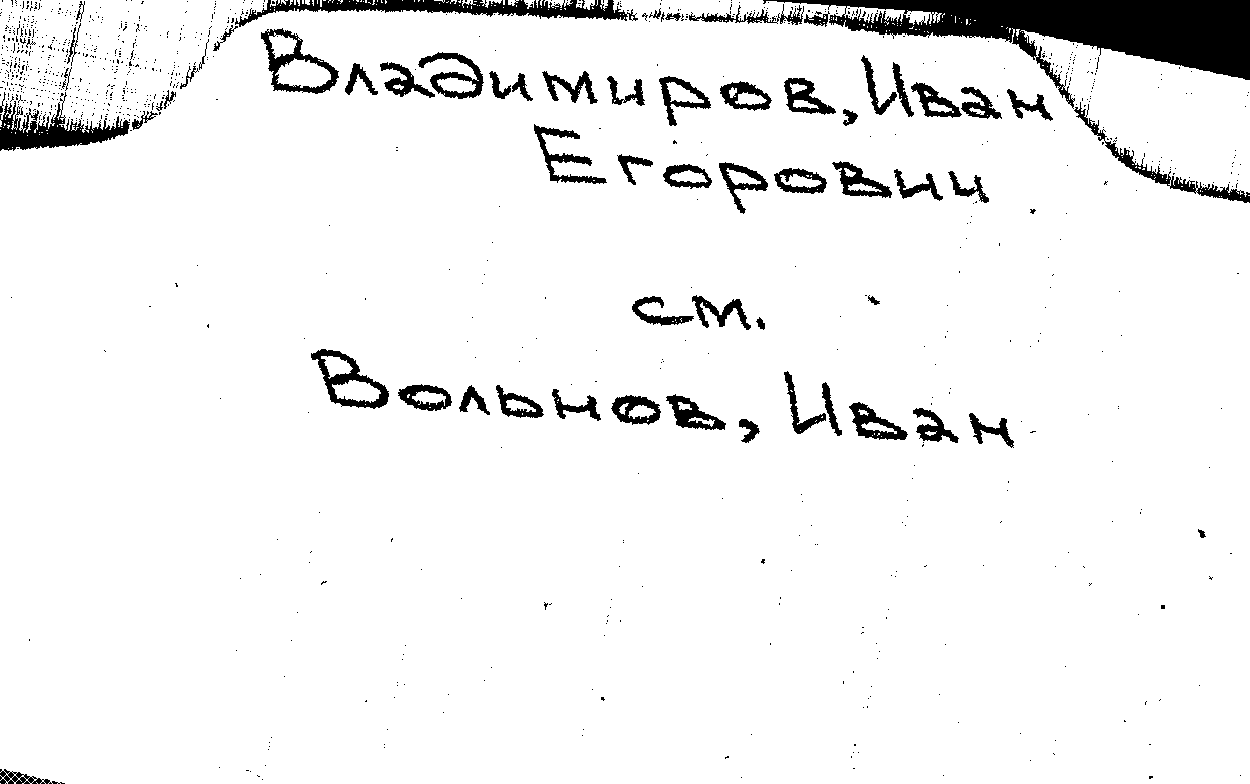 Владимиров, Иван
Егорович
см.
Вольнов, Иван